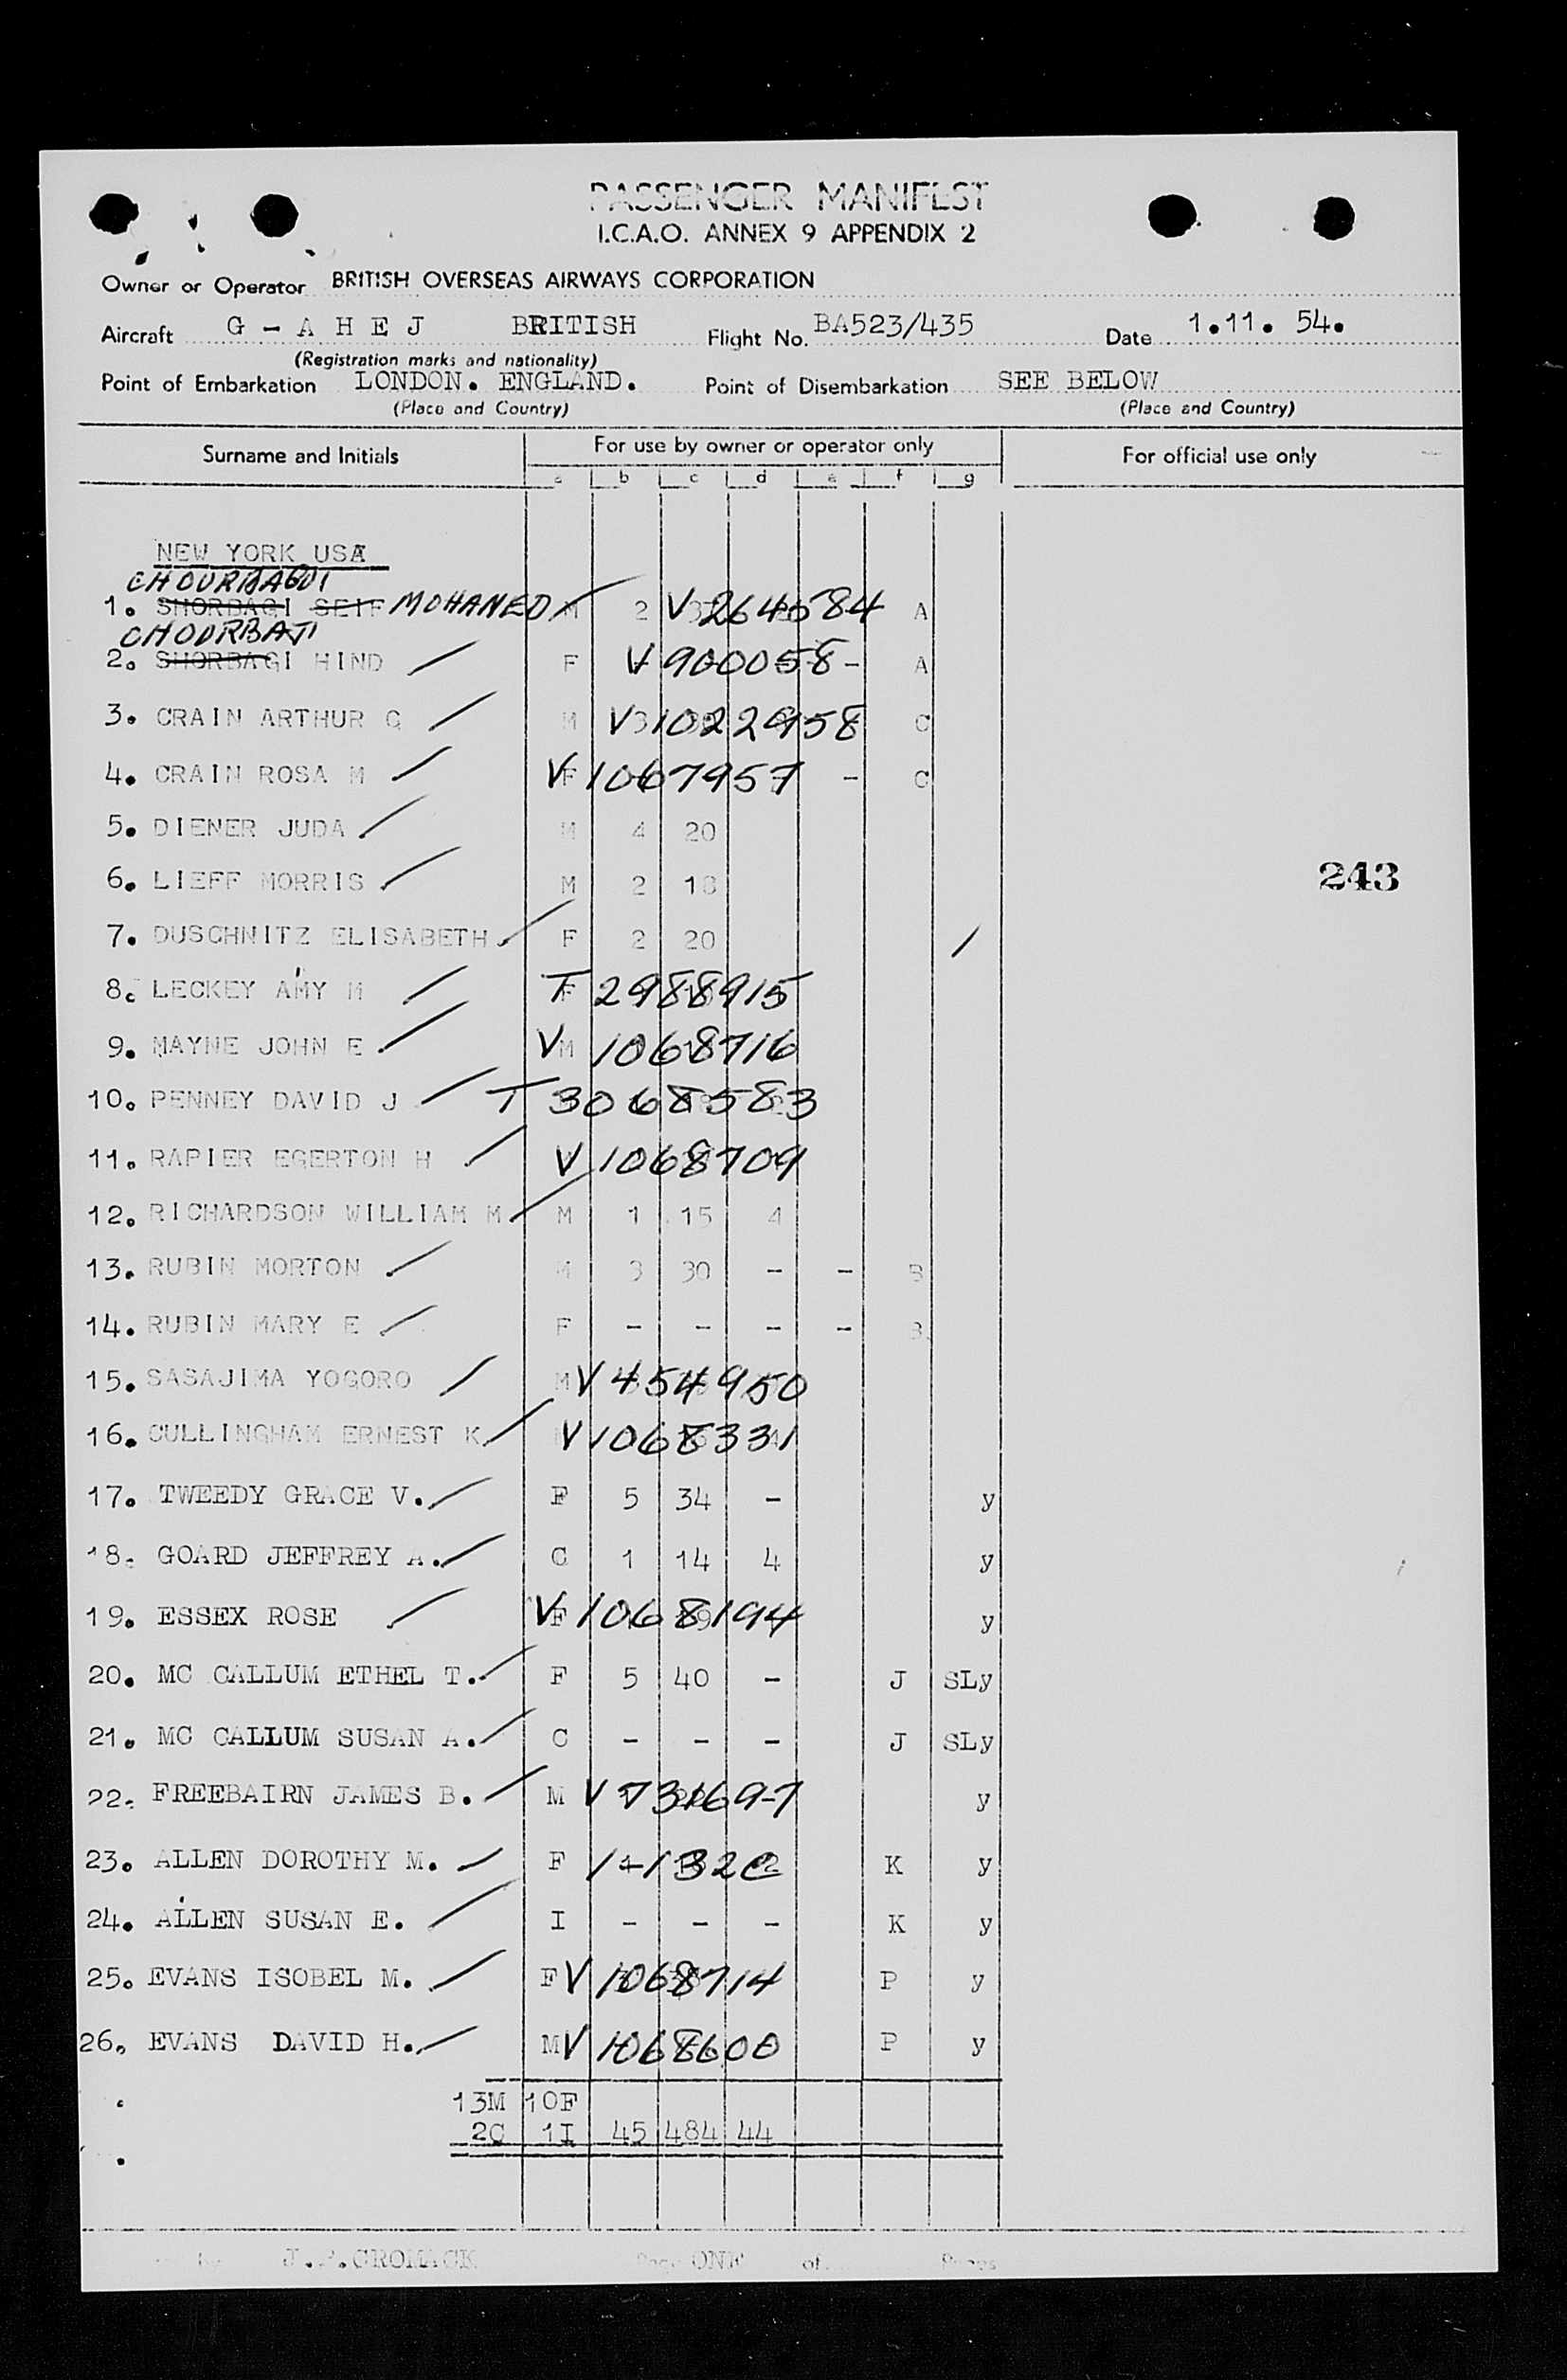 PASSENGER MANIFEST
I.C.A.O. ANNEX 9 APPENDIX 2
Owner or Operator BRITISH OVERSEAS AIRWAYS CORPORATION
Aircraft G - A H E J BRITISH Flight No. BA523/435 Date 1.11. 54.
(Registration marks and nationality)
Point of Embarkation LONDON. ENGLAND. Point of Disembarkation SEE BELOW
(Place and Country) (Place and Country)
Surname and Initials For use by owner or operator only For official use only
a b c d e f g
NEW YORK USA
CHOURBAGUI
1. SHORBAGI SEIF MOHAMED M 2 V 264584 A
CHOURBAJI
2. SHORBAGI HIND F V 900058 - A
3. CRAIN ARTHUR C M V 1022958 C
4. CRAIN ROSA M F V 1067957 - C
5. DIENER JUDA M 4 20
6. LIEFF MORRIS M 2 18
243
7. DUSCHNITZ ELISABETH F 2 20
8. LECKEY AMY M F T 2988915
9. MAYNE JOHN E V M 1068716
10. PENNEY DAVID J T 3068583
11. RAPIER EGERTON H V 1068709
12. RICHARDSON WILLIAM M M 1 15 4
13. RUBIN MORTON M 3 30 - - B
14. RUBIN MARY E F - - - - B
15. SASAJIMA YOGORO M V 454950
16. CULLINGHAM ERNEST K V 1068331
17. TWEEDY GRACE V. F 5 34 - y
18. GOARD JEFFREY A. C 1 14 4 y
19. ESSEX ROSE V F 1068194 y
20. MC CALLUM ETHEL T. F 5 40 - J SLy
21. MC CALLUM SUSAN A. C - - - J SLy
22. FREEBAIRN JAMES B. M V 731697 y
23. ALLEN DOROTHY M. F K y
24. ALLEN SUSAN E. I - - - K y
25. EVANS ISOBEL M. F V 1068714 P y
26. EVANS DAVID H. M V 1068600 P y
13M 10F
2C 1I 45 484 44
J.P.CROMACK Page ONE of Pages